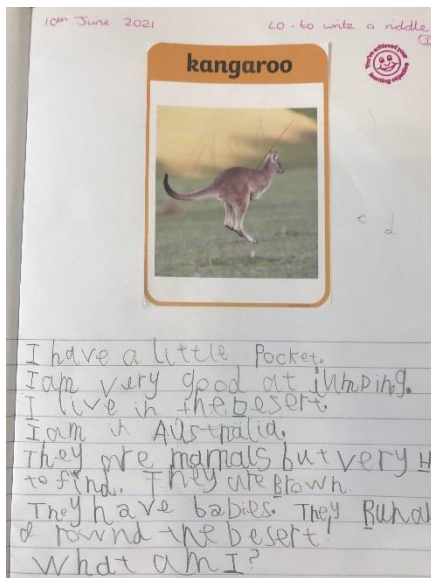 10th June 2021
LO - to write a riddle
You've achieved your learning objective
kangaroo
I have a little Pocket.
I am very good at jumping.
I live in the Desert.
I am in Australia.
They are mamals but very H
to find. They are Brown.
They have babies. They Run a
round the Desert!
What am I?